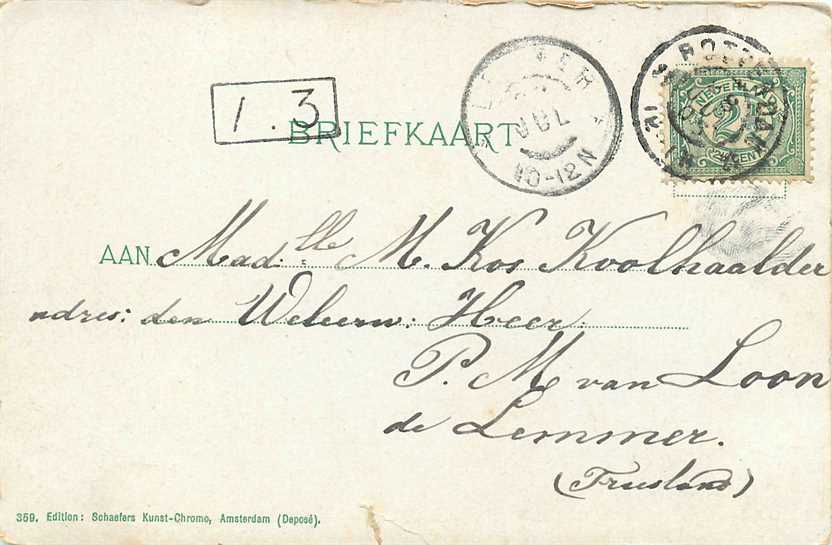 1.3
BRIEFKAART
10-12N
NEDERLAND
2½ CENT
AAN Mad.lle M. Kos Koolhaalder
adres: den Weleerw: Heer
P. M. van Loon
de Lemmer.
(Friesland)
359. Edition: Schaefers Kunst-Chromo, Amsterdam (Deposé).